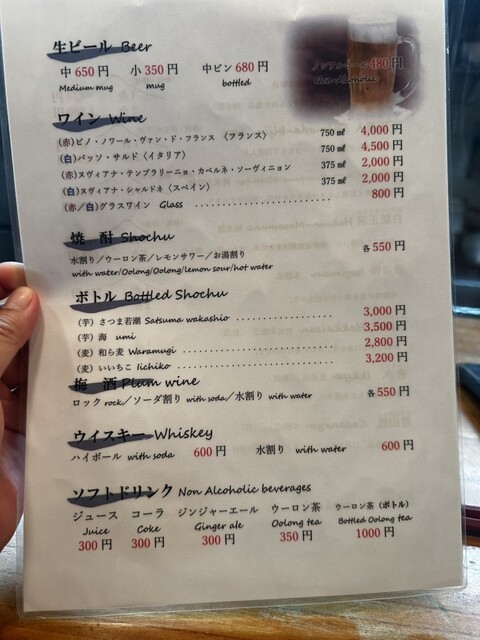 生ビール Beer
中 650 円 小 350 円 中ビン 680 円 ノンアルコール 480 円
Medium mug mug bottled Non-Alcoholic
ワイン Wine
(赤)ピノ・ノワール・ヴァン・ド・フランス 〈フランス〉 750 ㎖ 4,000 円
(白)パッソ・サルド〈イタリア〉 750 ㎖ 4,500 円
(赤)ヌヴィアナ・テンプラリーニョ・カベルネ・ソーヴィニョン 375 ㎖ 2,000 円
(白)ヌヴィアナ・シャルドネ〈スペイン〉 375 ㎖ 2,000 円
(赤/白)グラスワイン Glass 800 円
焼 酎 Shochu
水割り/ウーロン茶/レモンサワー/お湯割り 各 550 円
with water/Oolong/Oolong/lemon sour/hot water
ボトル Bottled Shochu
(芋) さつま若潮 Satsuma wakashio 3,000 円
(芋) 海 umi 3,500 円
(麦) 和ら麦 Waramugi 2,800 円
(麦) いいちこ Iichiko 3,200 円
梅 酒 Plam wine
ロック rock/ソーダ割り with soda/水割り with water 各 550 円
ウイスキー Whiskey
ハイボール with soda 600 円 水割り with water 600 円
ソフトドリンク Non Alcoholic beverages
ジュース コーラ ジンジャーエール ウーロン茶 ウーロン茶 (ボトル)
Juice Coke Ginger ale Oolong tea Bottled Oolong tea
300 円 300 円 300 円 350 円 1000 円